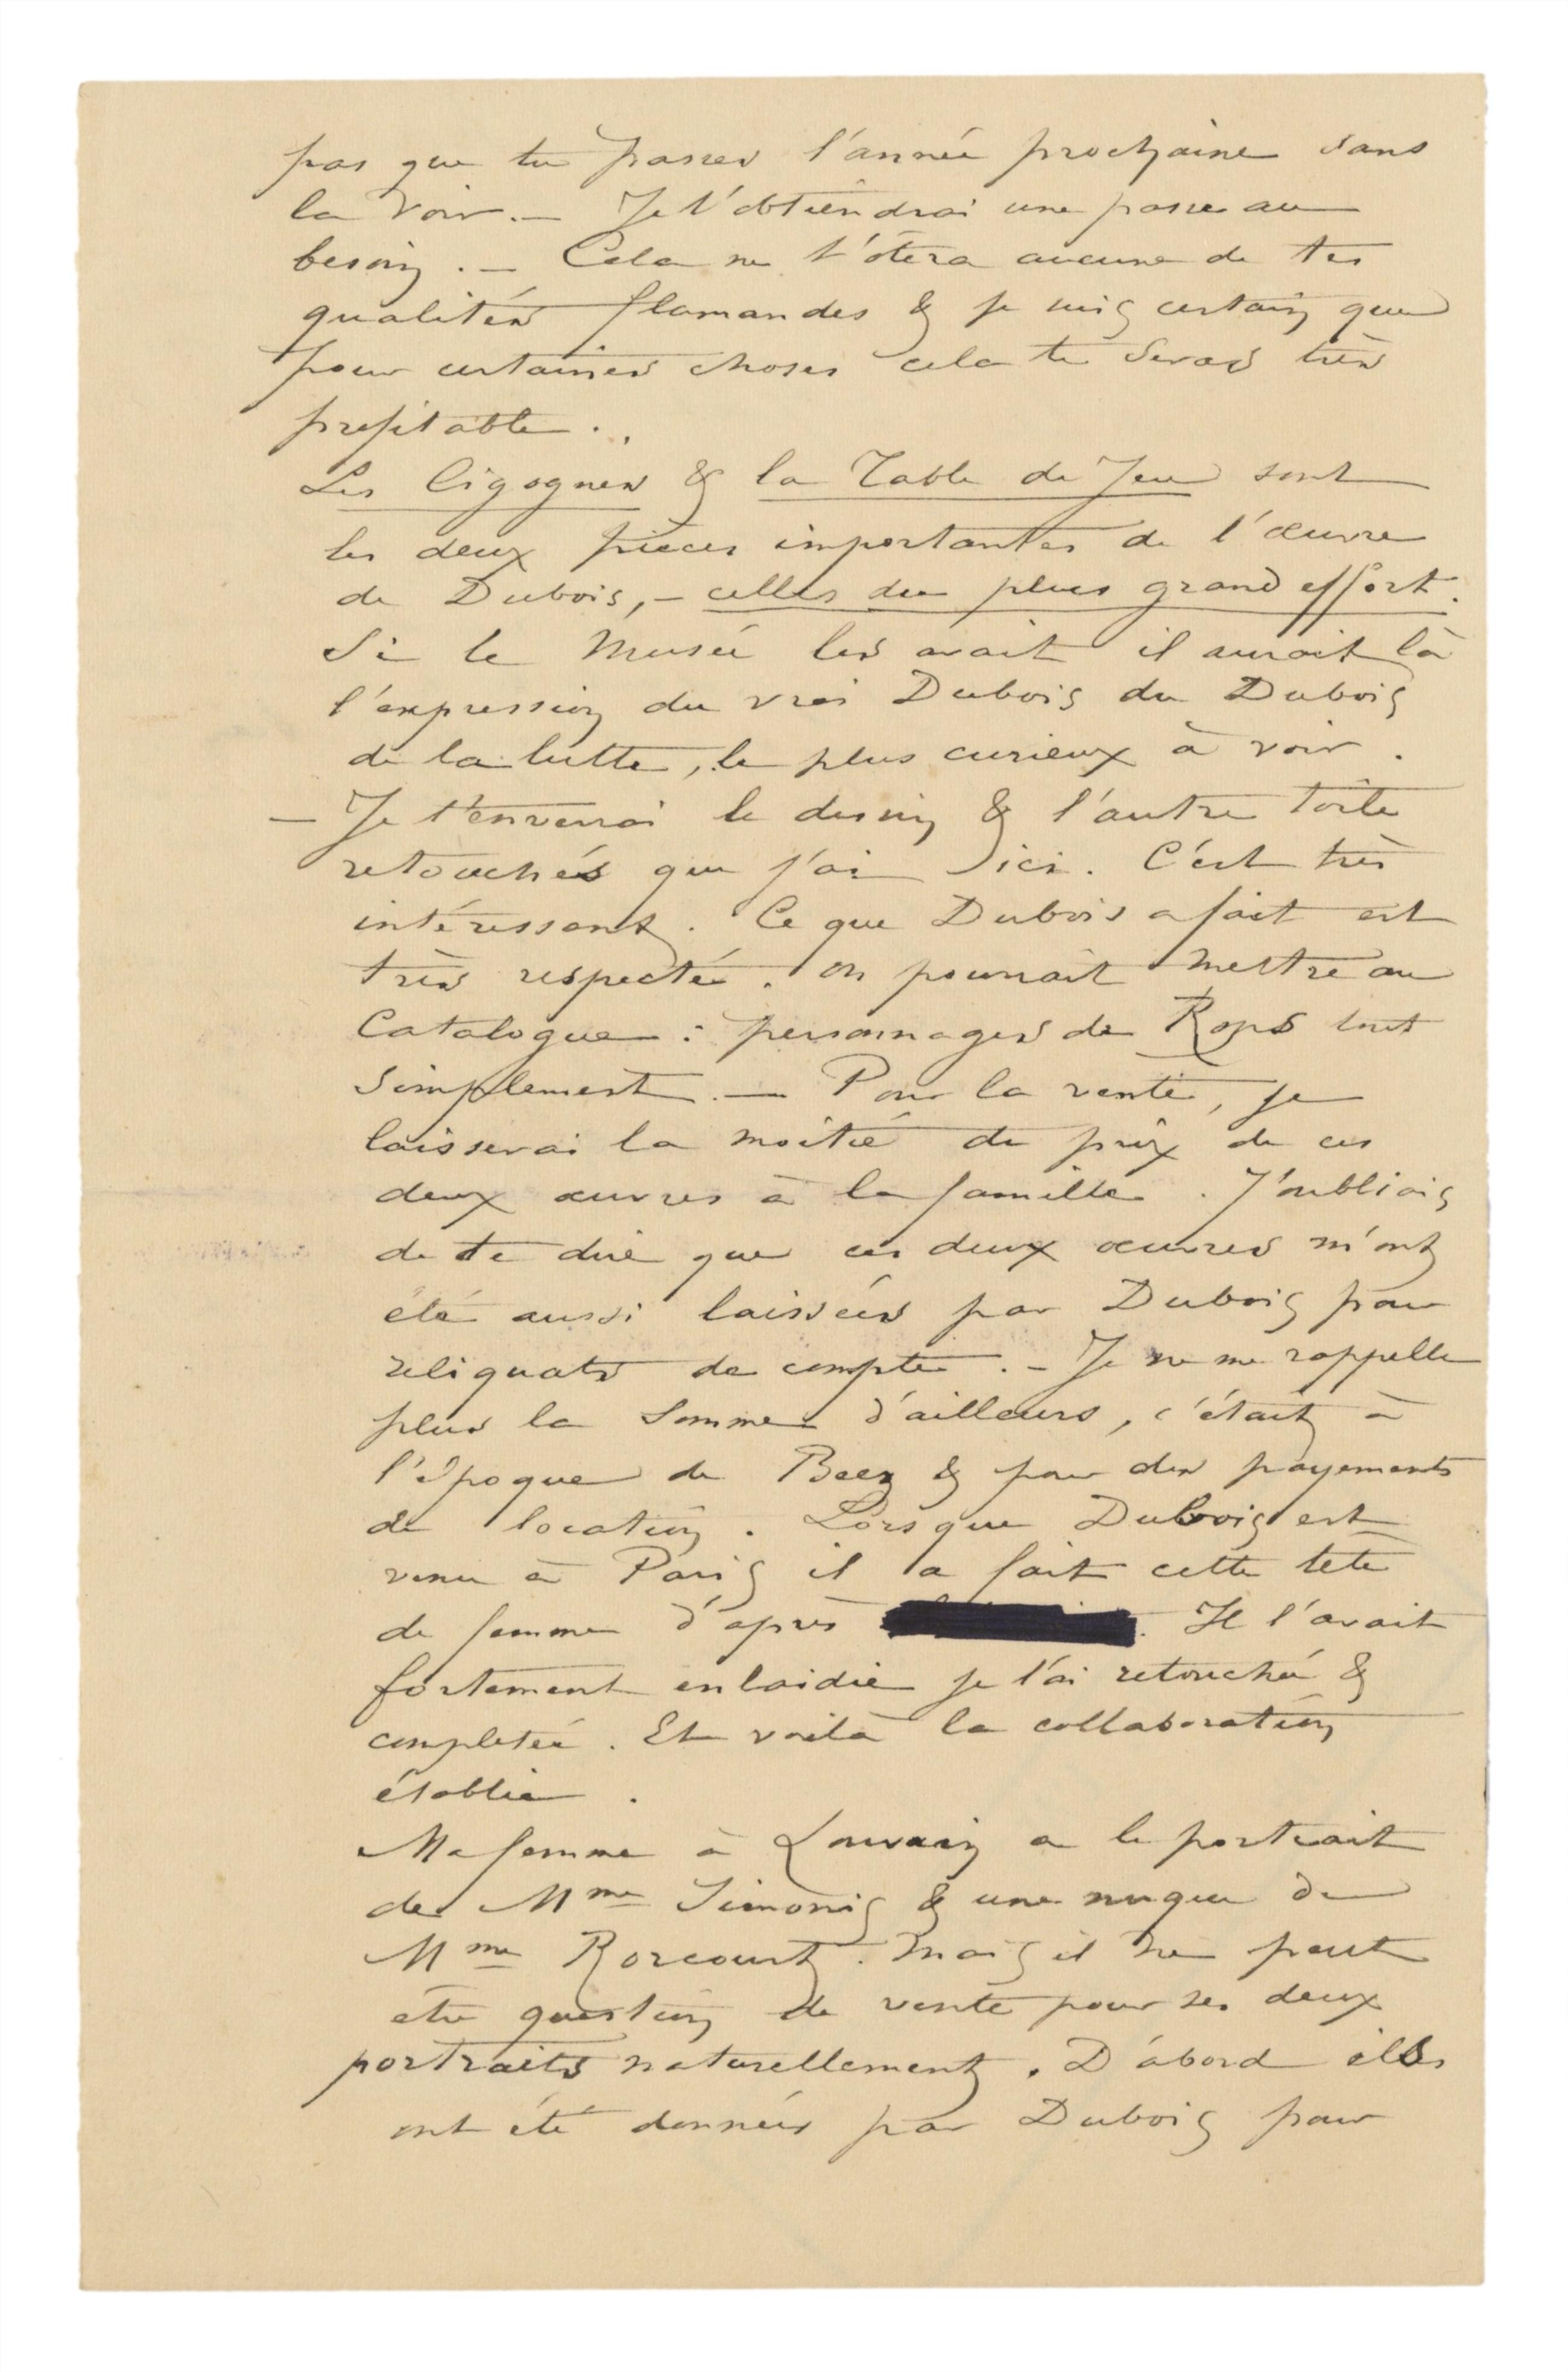 pas que tu passes l'année prochaine sans
la voir. — Je t'obtiendrai une passe au
besoin. — Cela ne t'ôtera aucune de tes
qualités flamandes & je suis certain que
pour certaines choses cela te serais très
profitable..
Les Cigognes & la Table de Jeu sont
les deux pièces importantes de l'œuvre
de Dubois, — celles du plus grand effort.
Si le Musée les avait il aurait là
l'expression du vrai Dubois du Dubois
de la lutte, le plus curieux à voir.
— Je t'enverrai le dessin & l'autre toile
retouchés que j'ai ici. C'est très
intéressant. Ce que Dubois a fait est
très respecté. On pourrait mettre au
Catalogue : personnages de Rops tout
simplement. — Pour la vente, je
laisserai la moitié du prix de ces
deux œuvres à la famille. J'oubliais
de te dire que ces deux œuvres m'ont
été aussi laissées par Dubois pour
reliquats de compte. — Je ne me rappelle
plus la somme d'ailleurs, c'était à
l'époque de Beez & pour des payements
de location. Lorsque Dubois est
venu à Paris il a fait cette tête
de femme d'après . Il l'avait
fortement enlaidie je l'ai retouchée &
completée. Et voilà la collaboration
établie.
Ma femme à Louvain a le portrait
de Mme Simonis & une nuque de
Mme Rorcourt. Mais il ne peut
être question de vente pour ses deux
portraits naturellement. D'abord elles
ont été données par Dubois pour